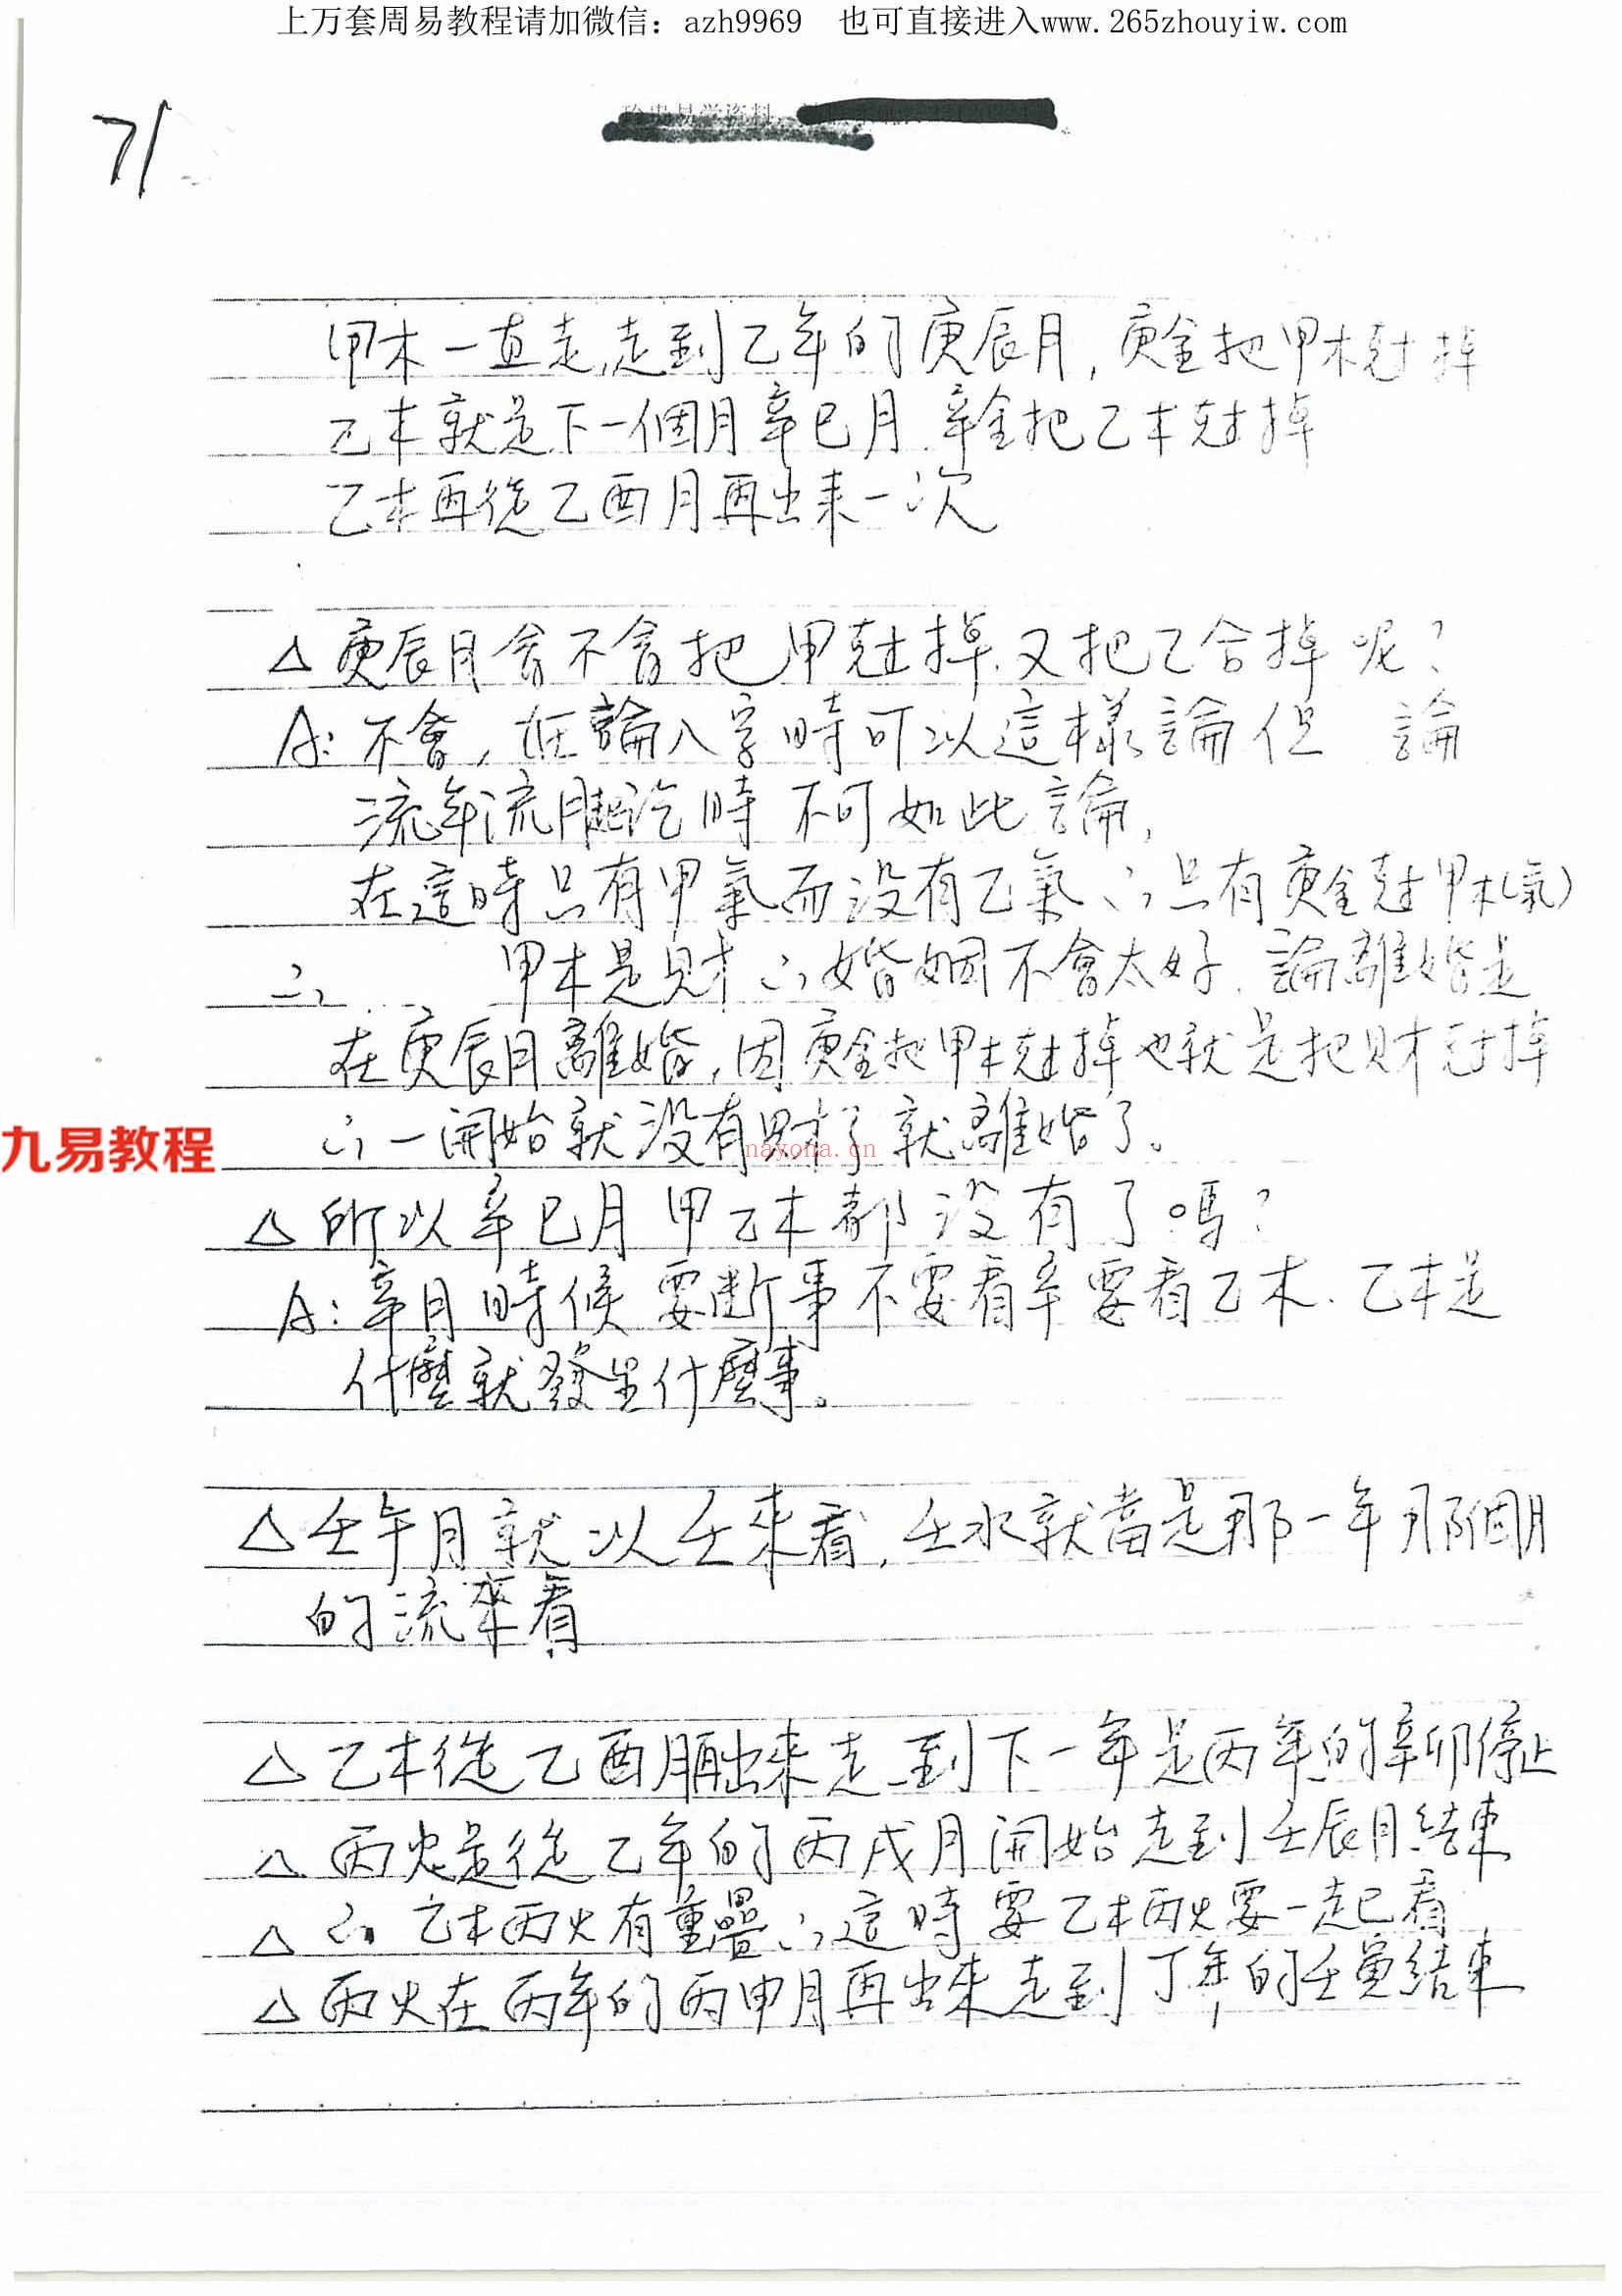 上万套周易教程请加微信：azh9969 也可直接进入www.265zhouyiw.com
71
甲木一直走,走到乙年的庚辰月，庚金把甲木尅掉
乙木就是下一個月辛巳月.辛金把乙木尅掉
乙木再從乙酉月再出來一次
△庚辰月會不會把甲尅掉.又把乙合掉呢?
A:不會，在論八字時可以這樣論但 論
流年流月起訖時不可如此論,
在這時只有甲氣而没有乙氣∴只有庚金尅甲木(氣)
甲木是財∴婚姻不會太好.論離婚是
在庚辰月離婚,因庚金把甲木尅掉也就是把財尅掉
∴一開始就没有財了就離婚了。
九易教程
nayona.cn
△所以辛巳月甲乙木都没有了嗎?
A:辛月時候要斷事不要看辛要看乙木.乙木是
什麼就發生什麼事。
△壬午月就以壬來看,壬水就當是那一年那個月
的流來看
△乙木從乙酉月再出來走到下一年是丙年的辛卯停止
△丙火是從乙年的丙戌月開始走到壬辰月結束
△∴乙木丙火有重疊∴這時要乙木丙火要一起看
△丙火在丙年的丙申月再出來走到丁年的壬寅結束